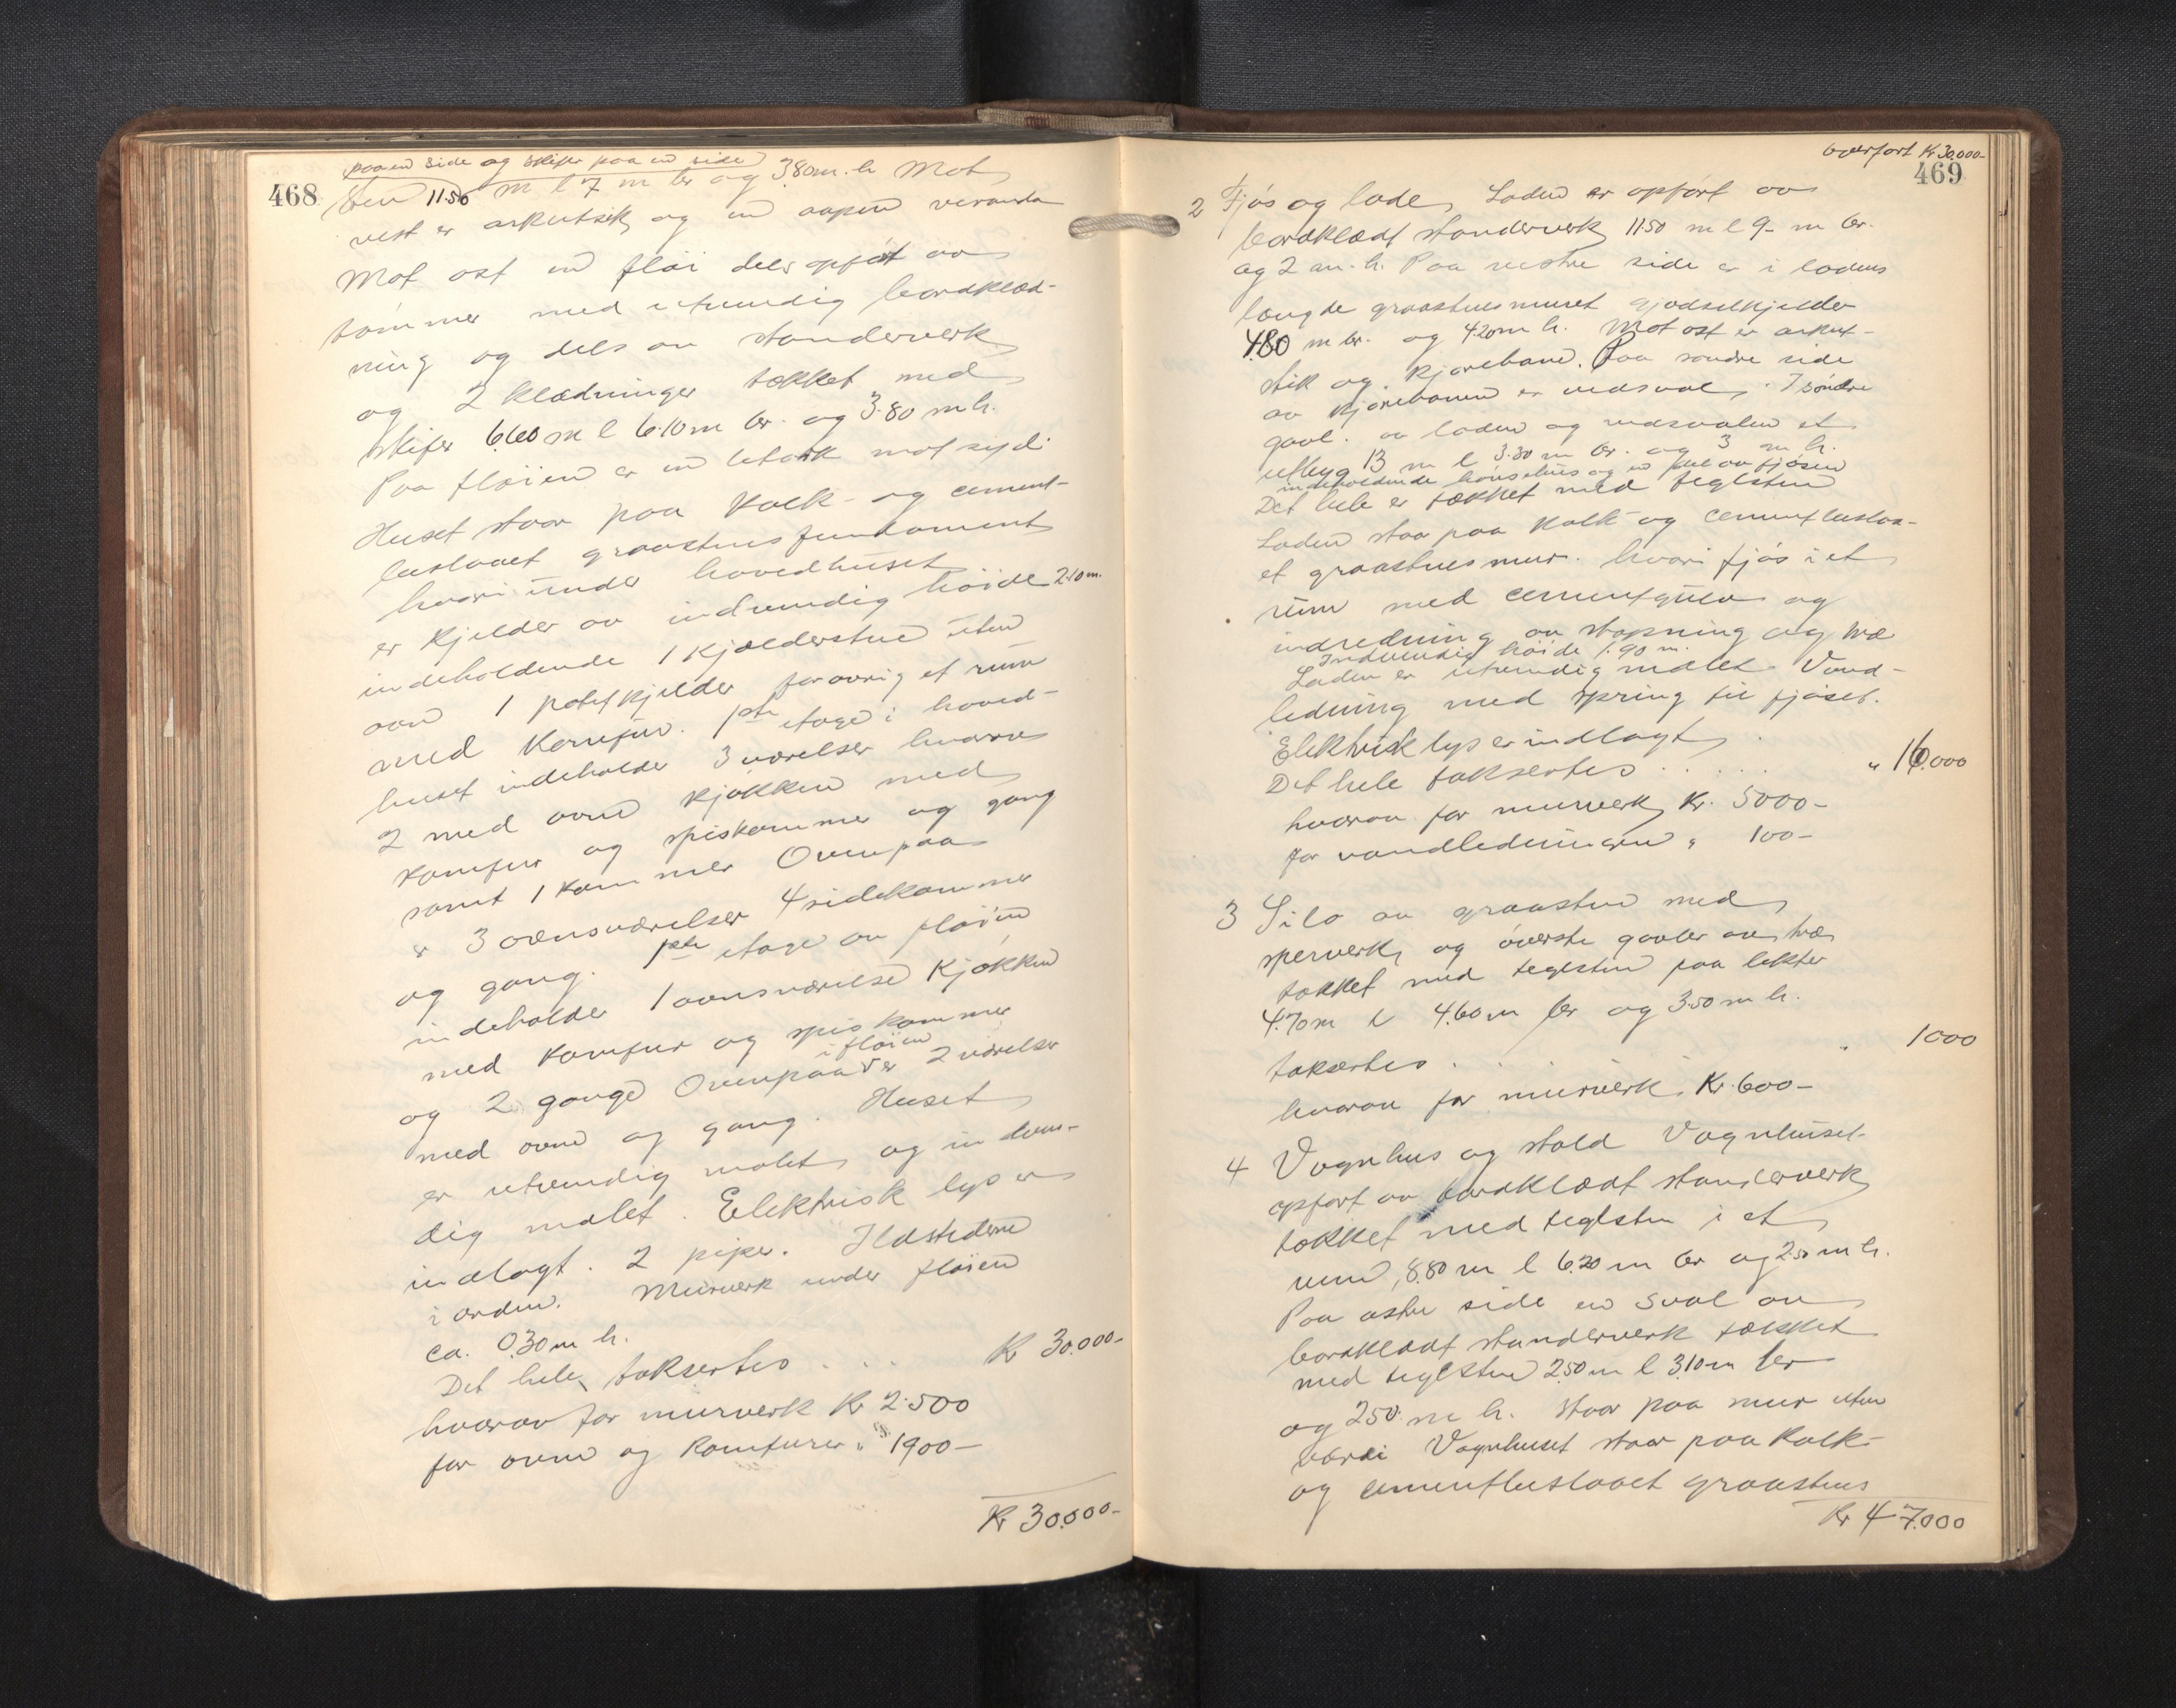 468
paa en side og skifer paa en side
sten 11.50 m l 7 m br og 3.80 m. h Mot
vest er arkutstik og en aapen veranda
Mot ost en fløi dels opført av
tømmer med utvendig bordklæd-
ning og dels av standerverk
og 2 klædninger tækket med
skifer 6.60 m l 6.10 m br. og 3.80 m h.
Paa fløien er en mot syd.
Huset staar paa kalk- og cement-
beslaaet graastensfundament
hvori under hovedhuset
er kjelder av indvendig høide 2.10 m.
indeholdende 1 kjælderstue uten
ovn 1 potetkjelder forøvrig et rum
med komfur. 1ste etage i hoved-
huset indeholder 3 værelser hvorav
2 med ovne kjøkken med
komfur og spiskammer og gang
samt 1 kammer Ovenpaa
er 3 ovnsværelser 4 sidekammer
og gang. 1ste etage av fløien
indeholder 1 ovnsværelse kjøkken
med komfur og spiskammer
og 2 gange Ovenpaa i fløien er 2 værelser
med ovne og gang. Huset
er utvendig malet og indven-
dig malet. Elektrisk lys er
indlagt. 2 piper. Ildstederne
i orden. Murverk under fløien
ca. 0.30 m h.
Det hele takseres . . . Kr 30.000-
hvorav for murverk Kr 2.500
for ovne og komfurer " 1900-
Kr 30.000-
Overført Kr 30.000-
469
2 Fjøs og lade, Laden er opført av
bordklædt standerverk 11.50 m l 9- m br.
og 2 m. h. Paa vestre side er i ladens
længde graastensmuret gjødselkjelder
4.80 m br. og 4.20 m h. Mot ost er arkut-
stik og kjørebane. Paa søndre side
av kjørebanen er vedsval, I søndre
gavl. av laden og vedsvalen et
utbyg 13 m l 3.30 m br. og 3 m h.
indeholdende hønsehus og en del av fjøsen
Det hele er tækket med teglsten
Laden staar paa kalk og cementbeslaa-
et graastensmur. hvori fjøs i et
rum med cementgulv og
indredning av støpning og træ
Indvendig høide 1.90 m.
Laden er utvendig malet Vand-
ledning med spring til fjøset.
Elektrisk lys er indlagt
Det hele takseres . . . . . " 16.000
hvorav for murverk Kr. 5000-
for vandledningen " 100-
3 Silo av graasten med
sperverk og øverste gavler av træ
tækket med teglsten paa lekter
4.70 m l 4.60 m br og 3.50 m h.
takseres . . . " 1000
hvorav for murverk Kr. 600-
4 Vognhus og stald Vognhuset
opført av bordklædt standerverk
tækket med teglsten i et
rum, 8.80 m l 6.20 m br og 2.50 m h.
Paa østre side en sval av
bordklædt standerverk tækket
med teglsten 2.50 m l 3.10 m br
og 2.50 m h. Staar paa mur uten
værdi Vognhuset staar paa kalk-
og cementbeslaaet graastens
Kr 47.000